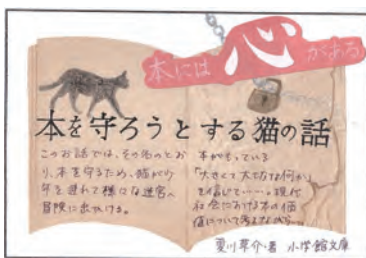 本には心がある
本を守ろうとする猫の話
このお話では、その名のとお
り、本を守るため、猫が少
年を連れて様々な迷宮へ
冒険に出かける。
本がもっている
「大きくて大切な何か」
を信じて……。現代
社会における本の価
値について考えながら…。
夏川草介・著 小学館文庫